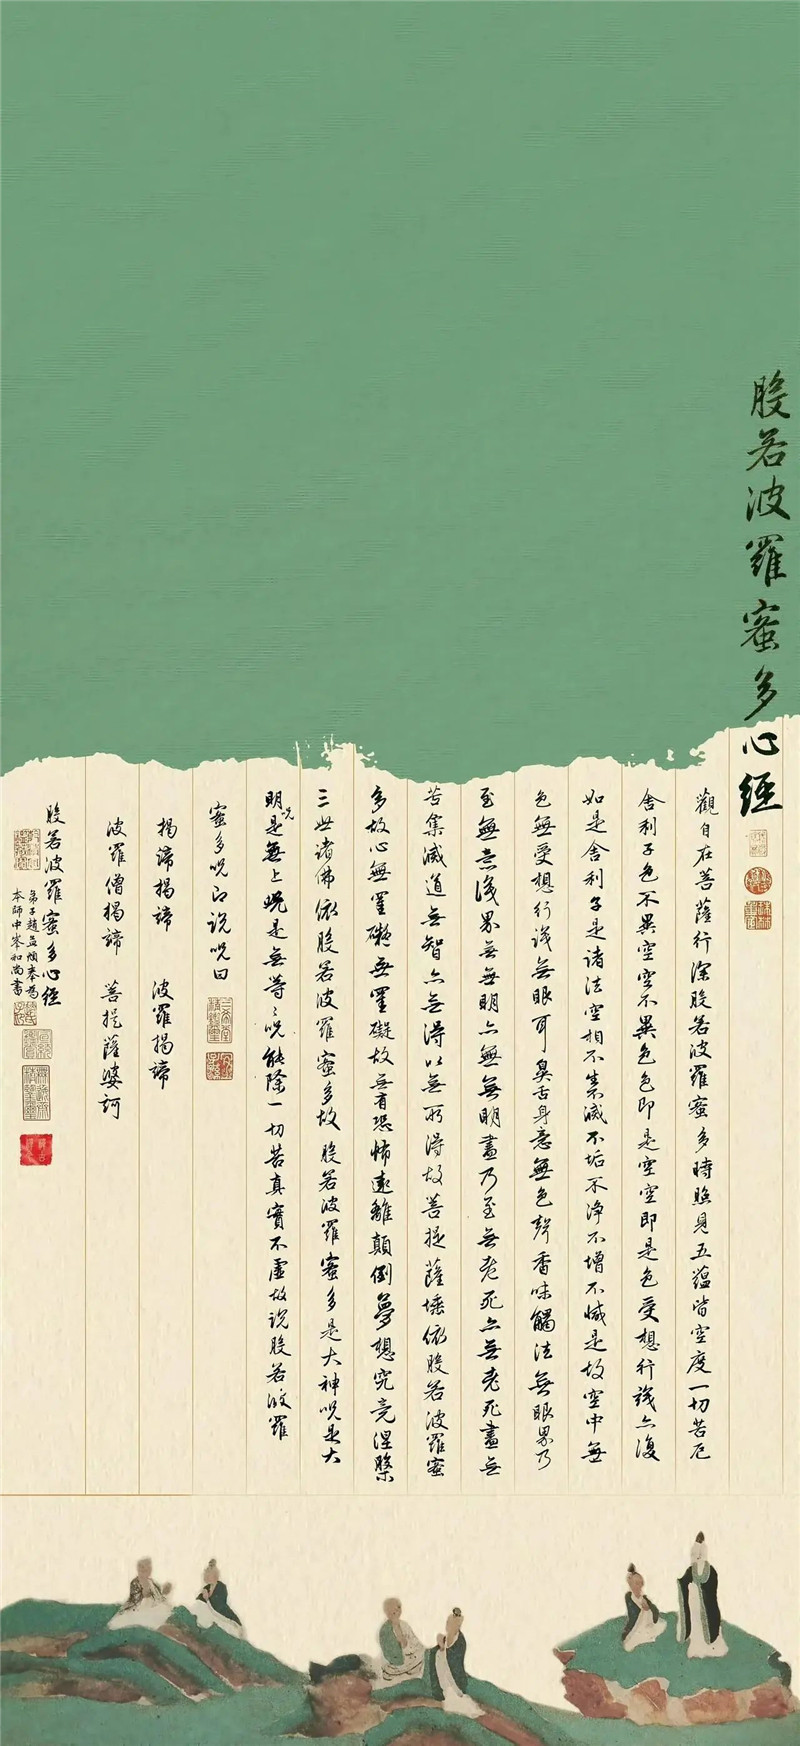 般若波羅蜜多心經
觀自在菩薩行深般若波羅蜜多時照見五蘊皆空度一切苦厄
舍利子色不異空空不異色色即是空空即是色受想行識亦復
如是舍利子是諸法空相不生不滅不垢不淨不增不減是故空中無
色無受想行識無眼耳鼻舌身意無色聲香味觸法無眼界乃
至無意識界無無明亦無無明盡乃至無老死亦無老死盡無
苦集滅道無智亦無得以無所得故菩提薩埵依般若波羅蜜
多故心無罣礙無罣礙故無有恐怖遠離顛倒夢想究竟涅槃
三世諸佛依般若波羅蜜多故般若波羅蜜多是大神咒是大
明咒是無上咒是無等〻咒能除一切苦真實不虛故說般若波羅
蜜多咒即說咒曰
揭諦揭諦 波羅揭諦
波羅僧揭諦 菩提薩婆訶
般若波羅蜜多心經
弟子趙孟頫奉為
本師中峯和尚書